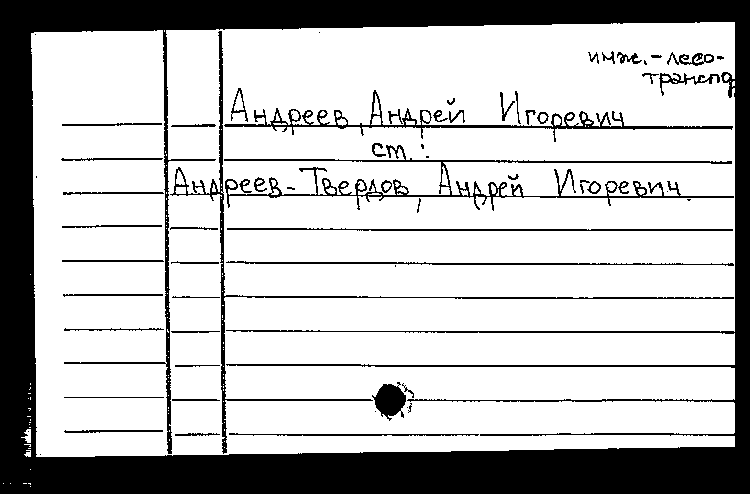 инж.-лесо-
трансп
Андреев, Андрей Игоревич
ст.:
Андреев-Твердов, Андрей Игоревич.